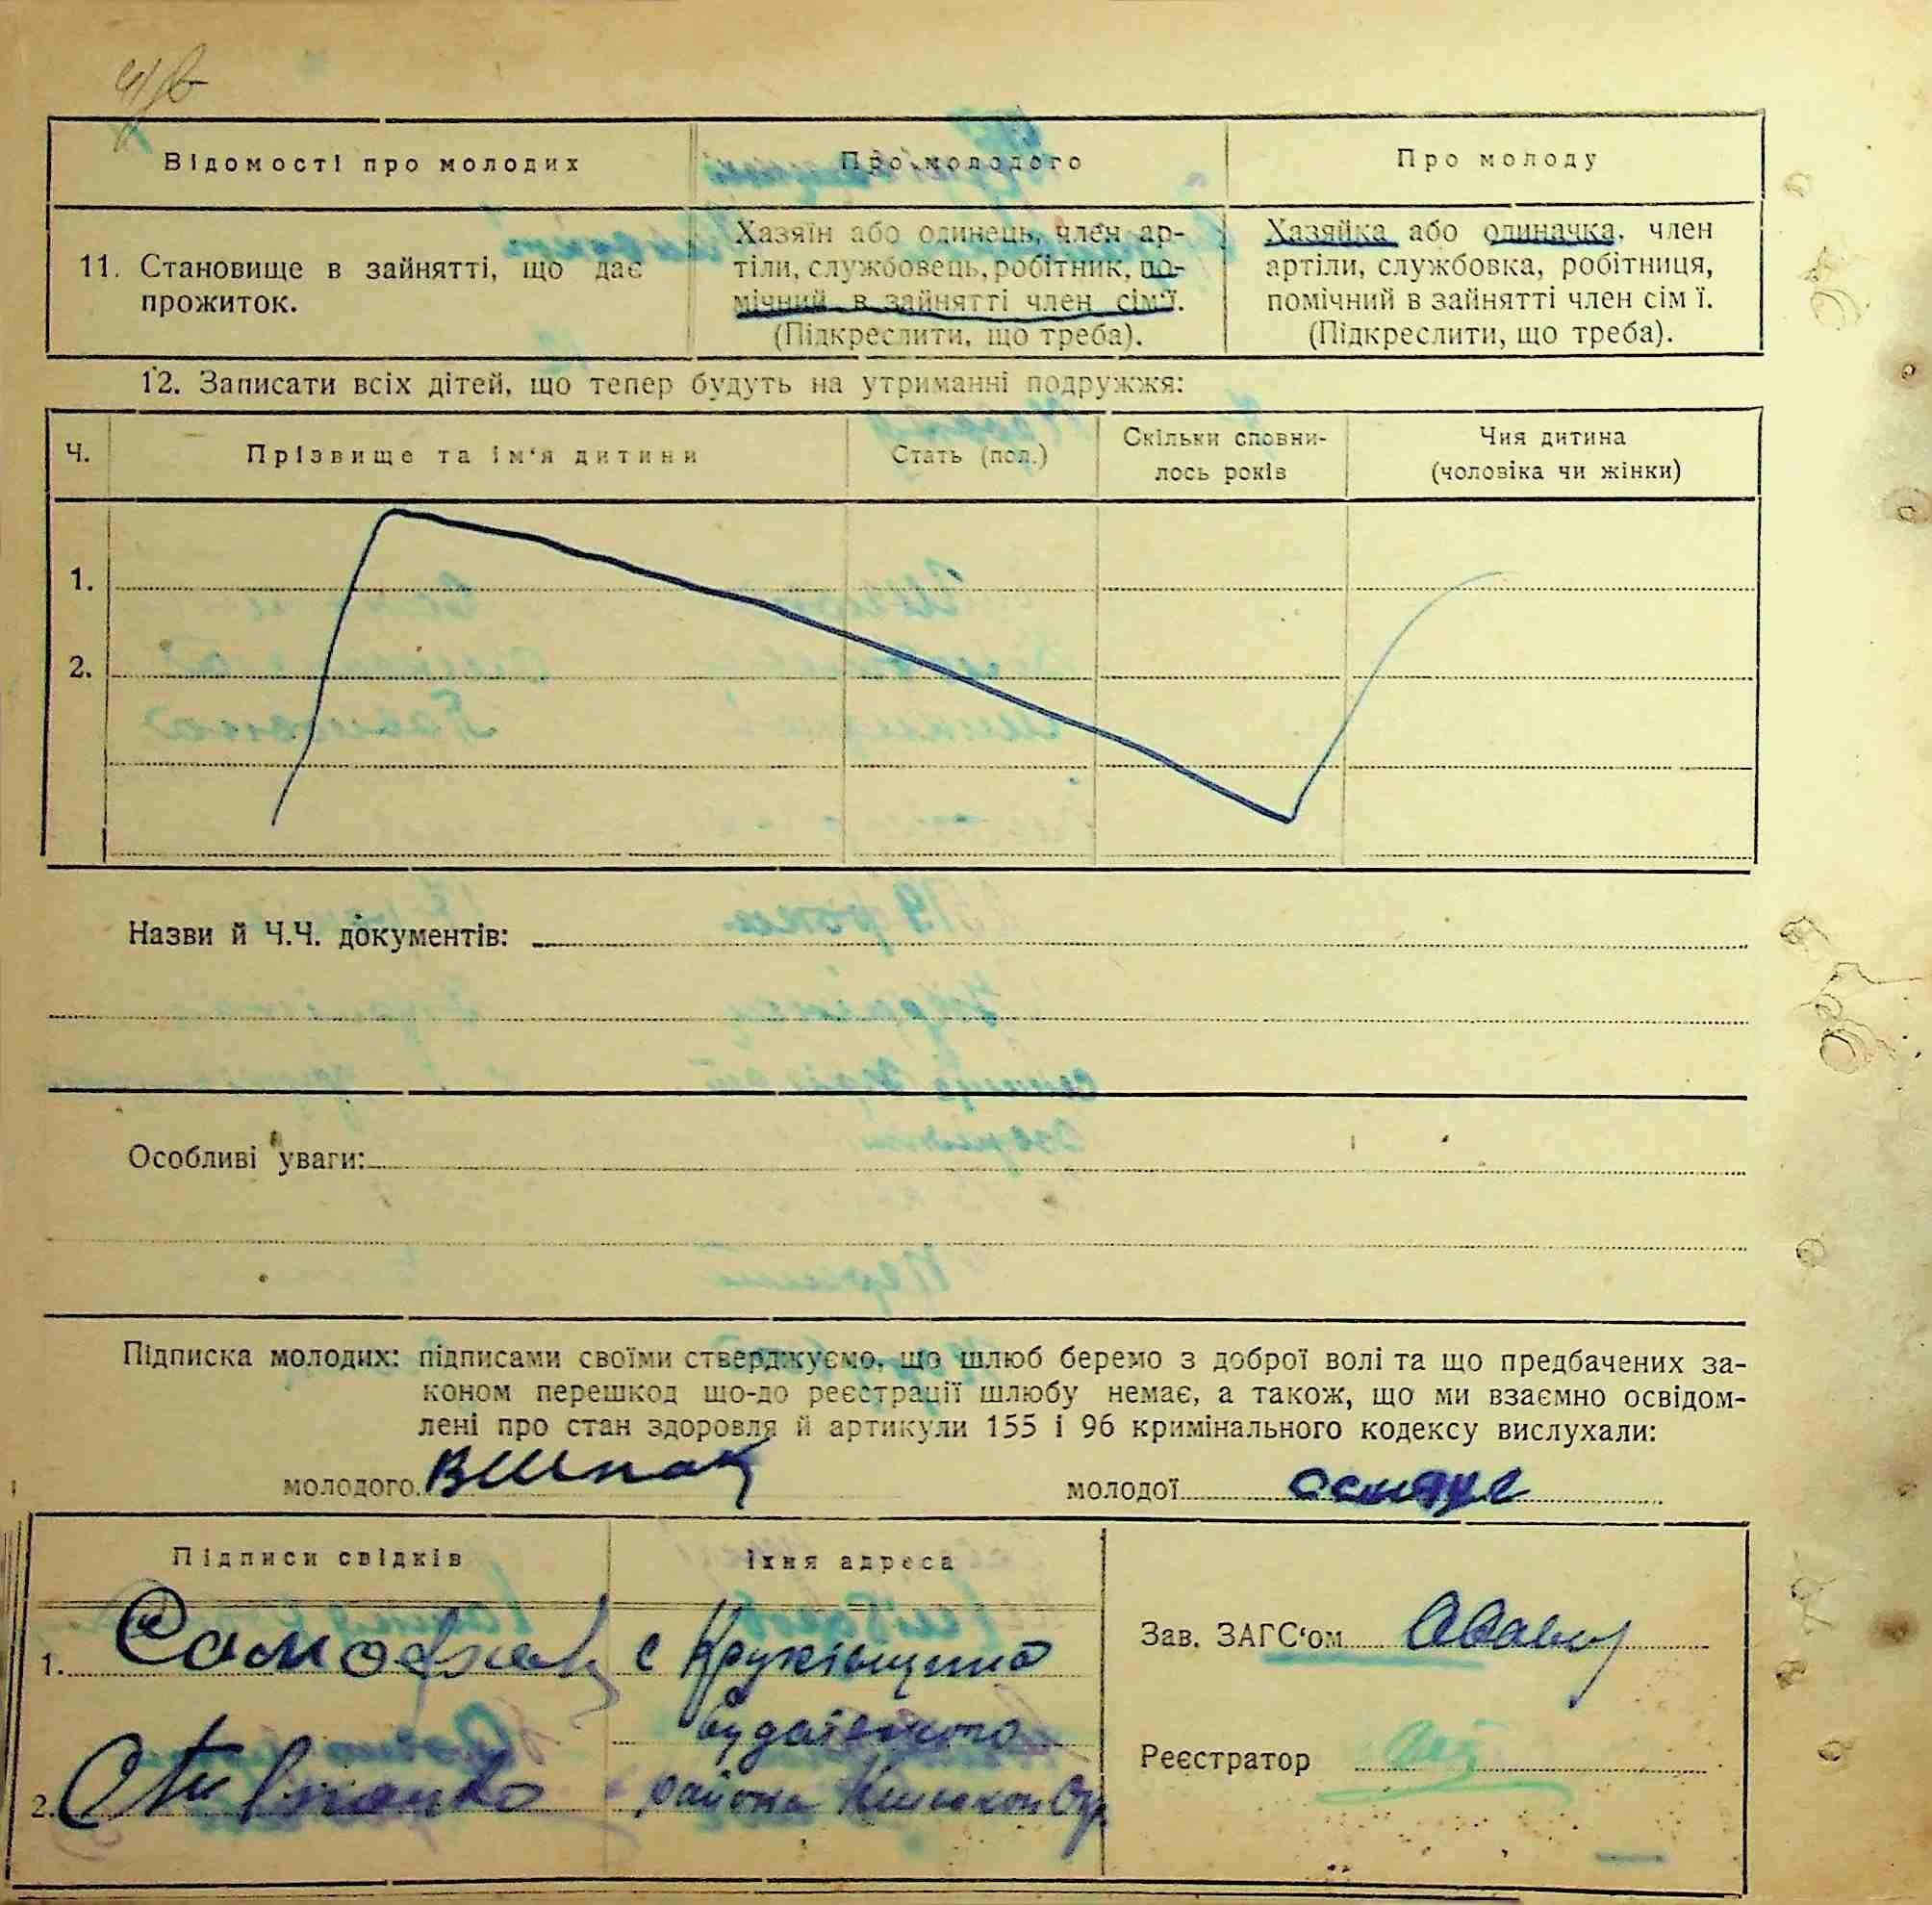 Відомості про молодих
Про молодого
Про молоду
11. Становище в зайнятті, що дає
прожиток.
Хазяїн або одинець, член ар-
тіли, службовець, робітник, по-
мічний в зайнятті член сім'ї.
(Підкреслити, що треба).
Хазяйка або одиначка, член
артіли, службовка, робітниця,
помічний в зайнятті член сім ї.
(Підкреслити, що треба).
12. Записати всіх дітей, що тепер будуть на утриманні подружжя:
Ч.
Прізвище та ім'я дитини
Стать (пол.)
Скільки сповни-
лось років
Чия дитина
(чоловіка чи жінки)
1.
2.
Назви й Ч.Ч. документів:
Особливі уваги:
Підписка молодих: підписами своїми стверджуємо, що шлюб беремо з доброї волі та що предбачених за-
коном перешкод що-до реєстрації шлюбу немає, а також, що ми взаємно освідом-
лені про стан здоровля й артикули 155 і 96 кримінального кодексу вислухали:
молодого ВШпак
молодої
Підписи свідків
їхня адреса
1.
с
2.
района
Зав. ЗАГС'ом
Реєстратор